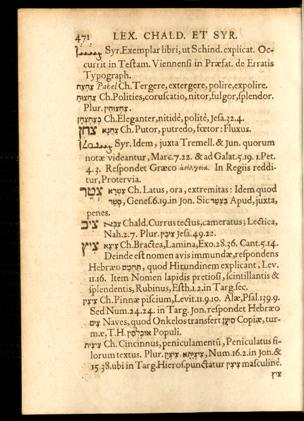 471 LEX. CHALD. ET SYR.
Syr. Exemplar libri, ut Schind. explicat. Oc-
currit in Testam. Viennensi in Præfat. de Erratis
Typograph.
Pahel Ch. Tergere, extergere, polire, expolire.
Ch. Polities, coruscatio, nitor, fulgor, splendor.
Plur.
Ch. Eleganter, nitidè, politè, Jesa. 32. 4.
צחן Ch. Putor, putredo, fœtor: Fluxus.
Syr. Idem, juxta Tremell. & Jun. quorum
notæ videantur, Marc. 7. 22. & ad Galat. 5. 19. 1. Pet.
4. 3. Respondet Græco In Regiis reddi-
tur, Protervia.
צטר Ch. Latus, ora, extremitas: Idem quod
סטר, Genes. 6. 19. in Jon. Sic Apud, juxta,
penes.
ציב Chald. Currus tectus, cameratus; Lectica,
Nah. 2. 7. Plur. Jesa. 49. 22.
ציץ Ch. Bractea, Lamina, Exo. 28. 36. Cant. 5. 14.
Deinde est nomen avis immundæ, respondens
Hebræo quod Hirundinem explicant, Lev.
11. 16. Item Nomen lapidis pretiosi, scintillantis &
splendentis, Rubinus, Esth. 1. 2. in Targ. sec.
Ch. Pinnæ piscium, Levit. 11. 9. 10. Alæ, Psal. 139. 9.
Sed Num. 24. 24. in Targ. Jon. respondet Hebræo
צים Naves, quod Onkelos transfert Copiæ, tur-
mæ, T. H. אוכלסין Populi.
ציצית Ch. Cincinnus, peniculamentū, Peniculatus fi-
lorum textus. Plur. Num. 16. 2. in Jon. &
15. 38. ubi in Targ. Hieros. punctatur masculinè.
ציץ